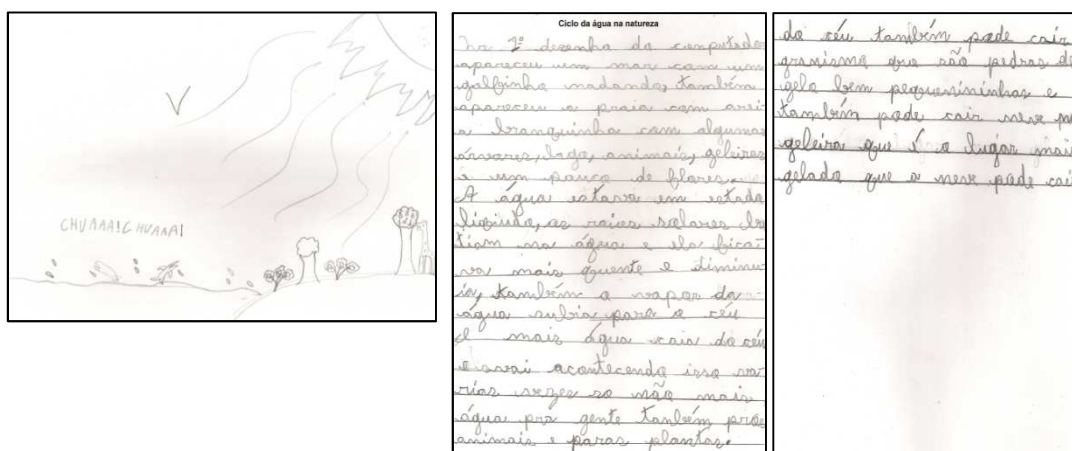 CHUAAA! CHUAAA!
Ciclo da água na natureza
no 1º desenho do computado
apareceu um mar com um
golfinho nadando, também
apareceu a praia com arei
a branquinha com algumas
árvores, lago, animais, geleiras
e um pouco de flores.
A água estava em estado
liquido, os raios solares ba
tiam na água e ela fica
va mais quente e diminu
ia, também o vapor da
água subia para o céu
e mais água caia do céu
e vai acontecendo isso va
rias vezes so não mais
água pra gente também pros
animais e paras plantas.
do céu também pode cair
granismo que são pedras de
gelo bem pequenininhas e
também pode cair neve
geleira que é o lugar mais
gelado que a neve pode cair